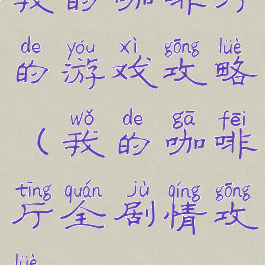 我的咖啡厅
de yóu xì gōng lüè
的游戏攻略
wǒ de gā fēi
(我的咖啡
tīng quán jù qíng gōng
厅全剧情攻
lüè